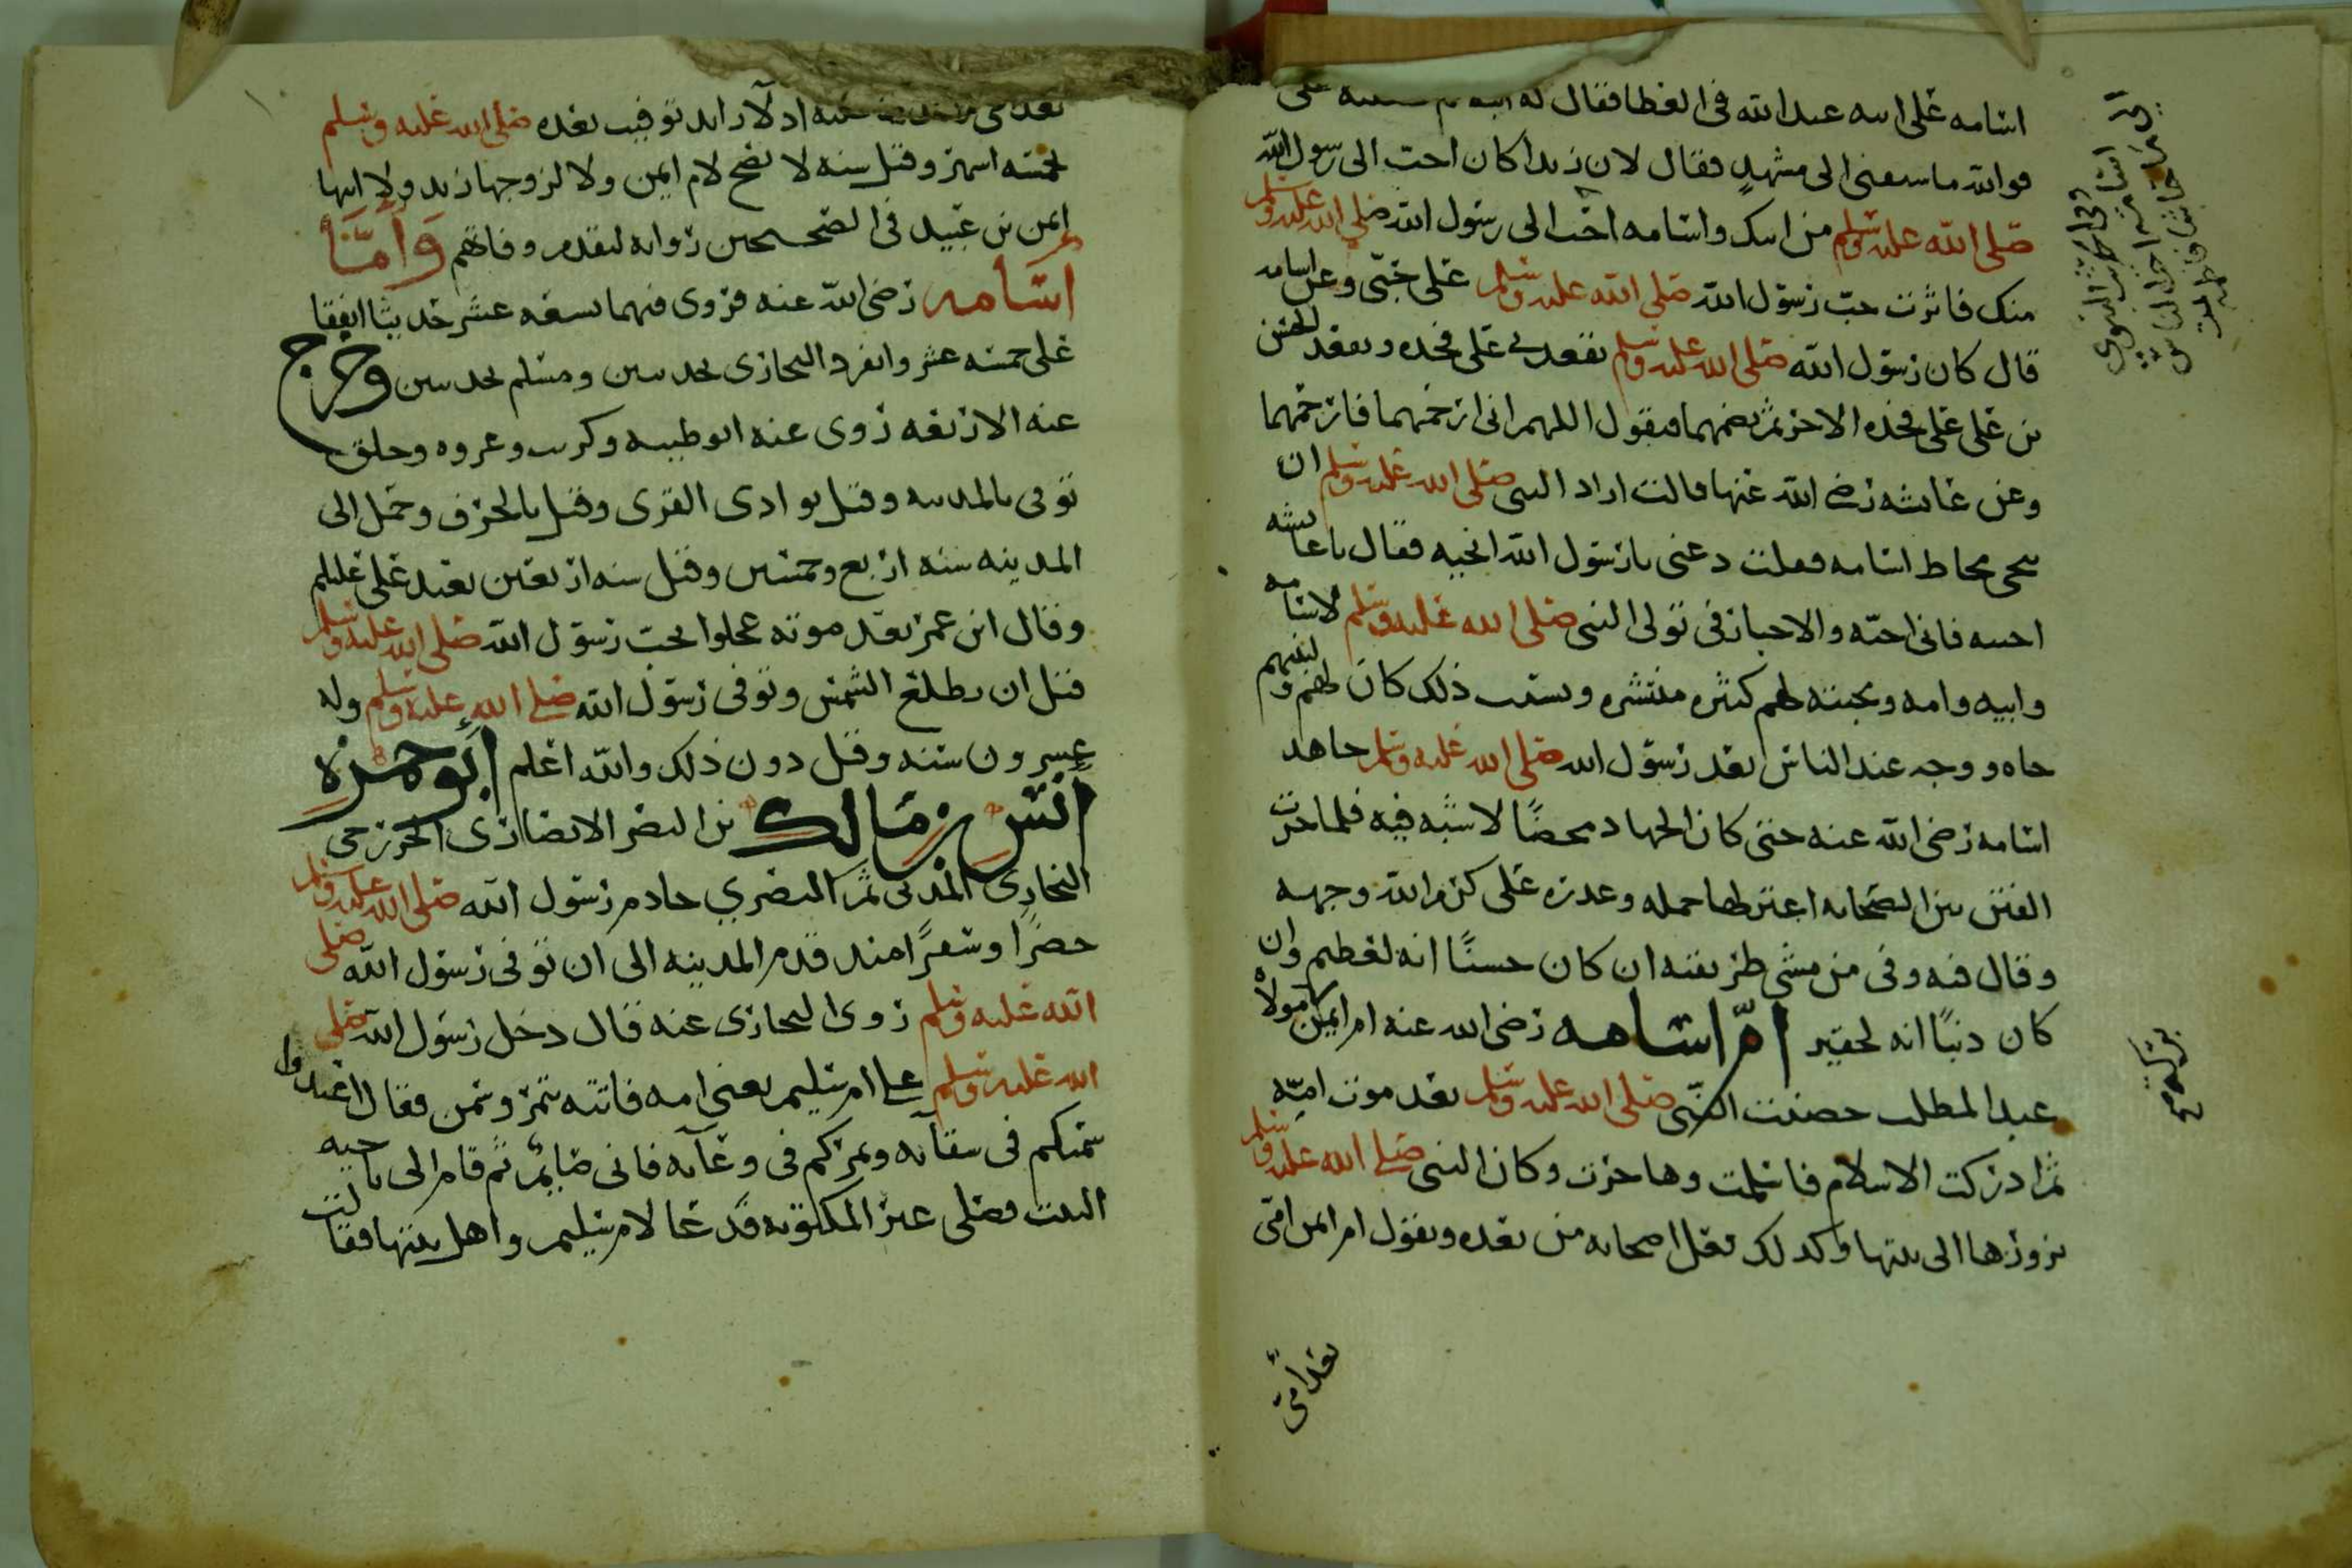 اسامه على ابنه عبد الله في العطا فقال له ابنه لم
فوالله ما سبقني الى مشهد فقال لان زيدا كان احب الى رسول الله
صلى الله عليه وسلم من ابيك واسامه احب الى رسول الله صلى الله عليه وسلم
منك فاثرت حب رسول الله صلى الله عليه وسلم على حبي وعن اسامه
قال كان رسول الله صلى الله عليه وسلم يقعدني على فخذه ويقعد الحسن
بن علي على فخذه الاخر ثم يضمهما فيقول اللهم اني ارحمهما فارحمهما
وعن عائشه رضي الله عنها قالت اراد النبي صلى الله عليه وسلم ان
ينحي مخاط اسامه فقلت دعني يا رسول الله انحيه فقال يا عائشه
احبيه فاني احبه والاخبار في تولى النبي صلى الله عليه وسلم لاسامه
وابيه وامه ومحبته لهم كثيره منتشره وبسبب ذلك كان لهم ولبنيهم
جاه ووجه عند الناس بعد رسول الله صلى الله عليه وسلم جاهد
اسامه رضي الله عنه حتى كان الجهاد محضًا لا شبه فيه فلما جرت
الفتن بين الصحابه اعتزلها جمله وعذره علي كرم الله وجهه
وقال فيه وفي من مشى طريقته ان كان حسنًا انه لعظيم وان
كان ذنبًا انه لحقير امّ اسامه رضي الله عنه ام ايمن مولاه
عبد المطلب حضنت النبي صلى الله عليه وسلم بعد موت امه
ثم ادركت الاسلام فاسلمت وهاجرت وكان النبي صلى الله عليه وسلم
يزورها الى بيتها وكذلك فعل اصحابه من بعده ويقول ام ايمن امي
بعد امي
صلى الله عليه وسلم
بخمسه اشهر وقيل سنه لا يصح لام ايمن ولا لزوجها زيد ولا ابنها
ايمن بن عبيد في الصحيحين روايه لتقدم وفاتهم وَأمّا
اسامه رضي الله عنه فروى فيهما تسعه عشر حديثا اتفقا
على خمسه عشر وانفرد البخاري بحديثين ومسلم بحديثين وخرج
عنه الاربعه روى عنه ابو ظبيه وكريب وعروه وخلق
توفي بالمدينه وقيل بوادي القرى وقيل بالجرف وحمل الى
المدينه سنه اربع وخمسين وقيل سنه اربعين بعد علي
وقال ابن عمر بعد موته عجلوا بحب رسول الله صلى الله عليه وسلم
قبل ان يطلع الشمس وتوفي رسول الله صلى الله عليه وسلم وله
عشرون سنه وقيل دون ذلك والله اعلم ابو حمزه
انس بن مالك بن النضر الانصاري الخزرجي
النجاري المدني ثم البصري خادم رسول الله صلى الله عليه وسلم
حضرًا وسفرًا منذ قدم المدينه الى ان توفي رسول الله صلى
الله عليه وسلم روى البخاري عنه قال دخل رسول الله صلى
الله عليه وسلم على ام سليم يعني امه فاتته بتمر وسمن فقال اعيدوا
سمنكم في سقآئه وتمركم في وعآئه فاني صايم ثم قام الى ناحيه
البيت فصلى غير المكتوبه فدعا لام سليم واهل بيتها فقالت